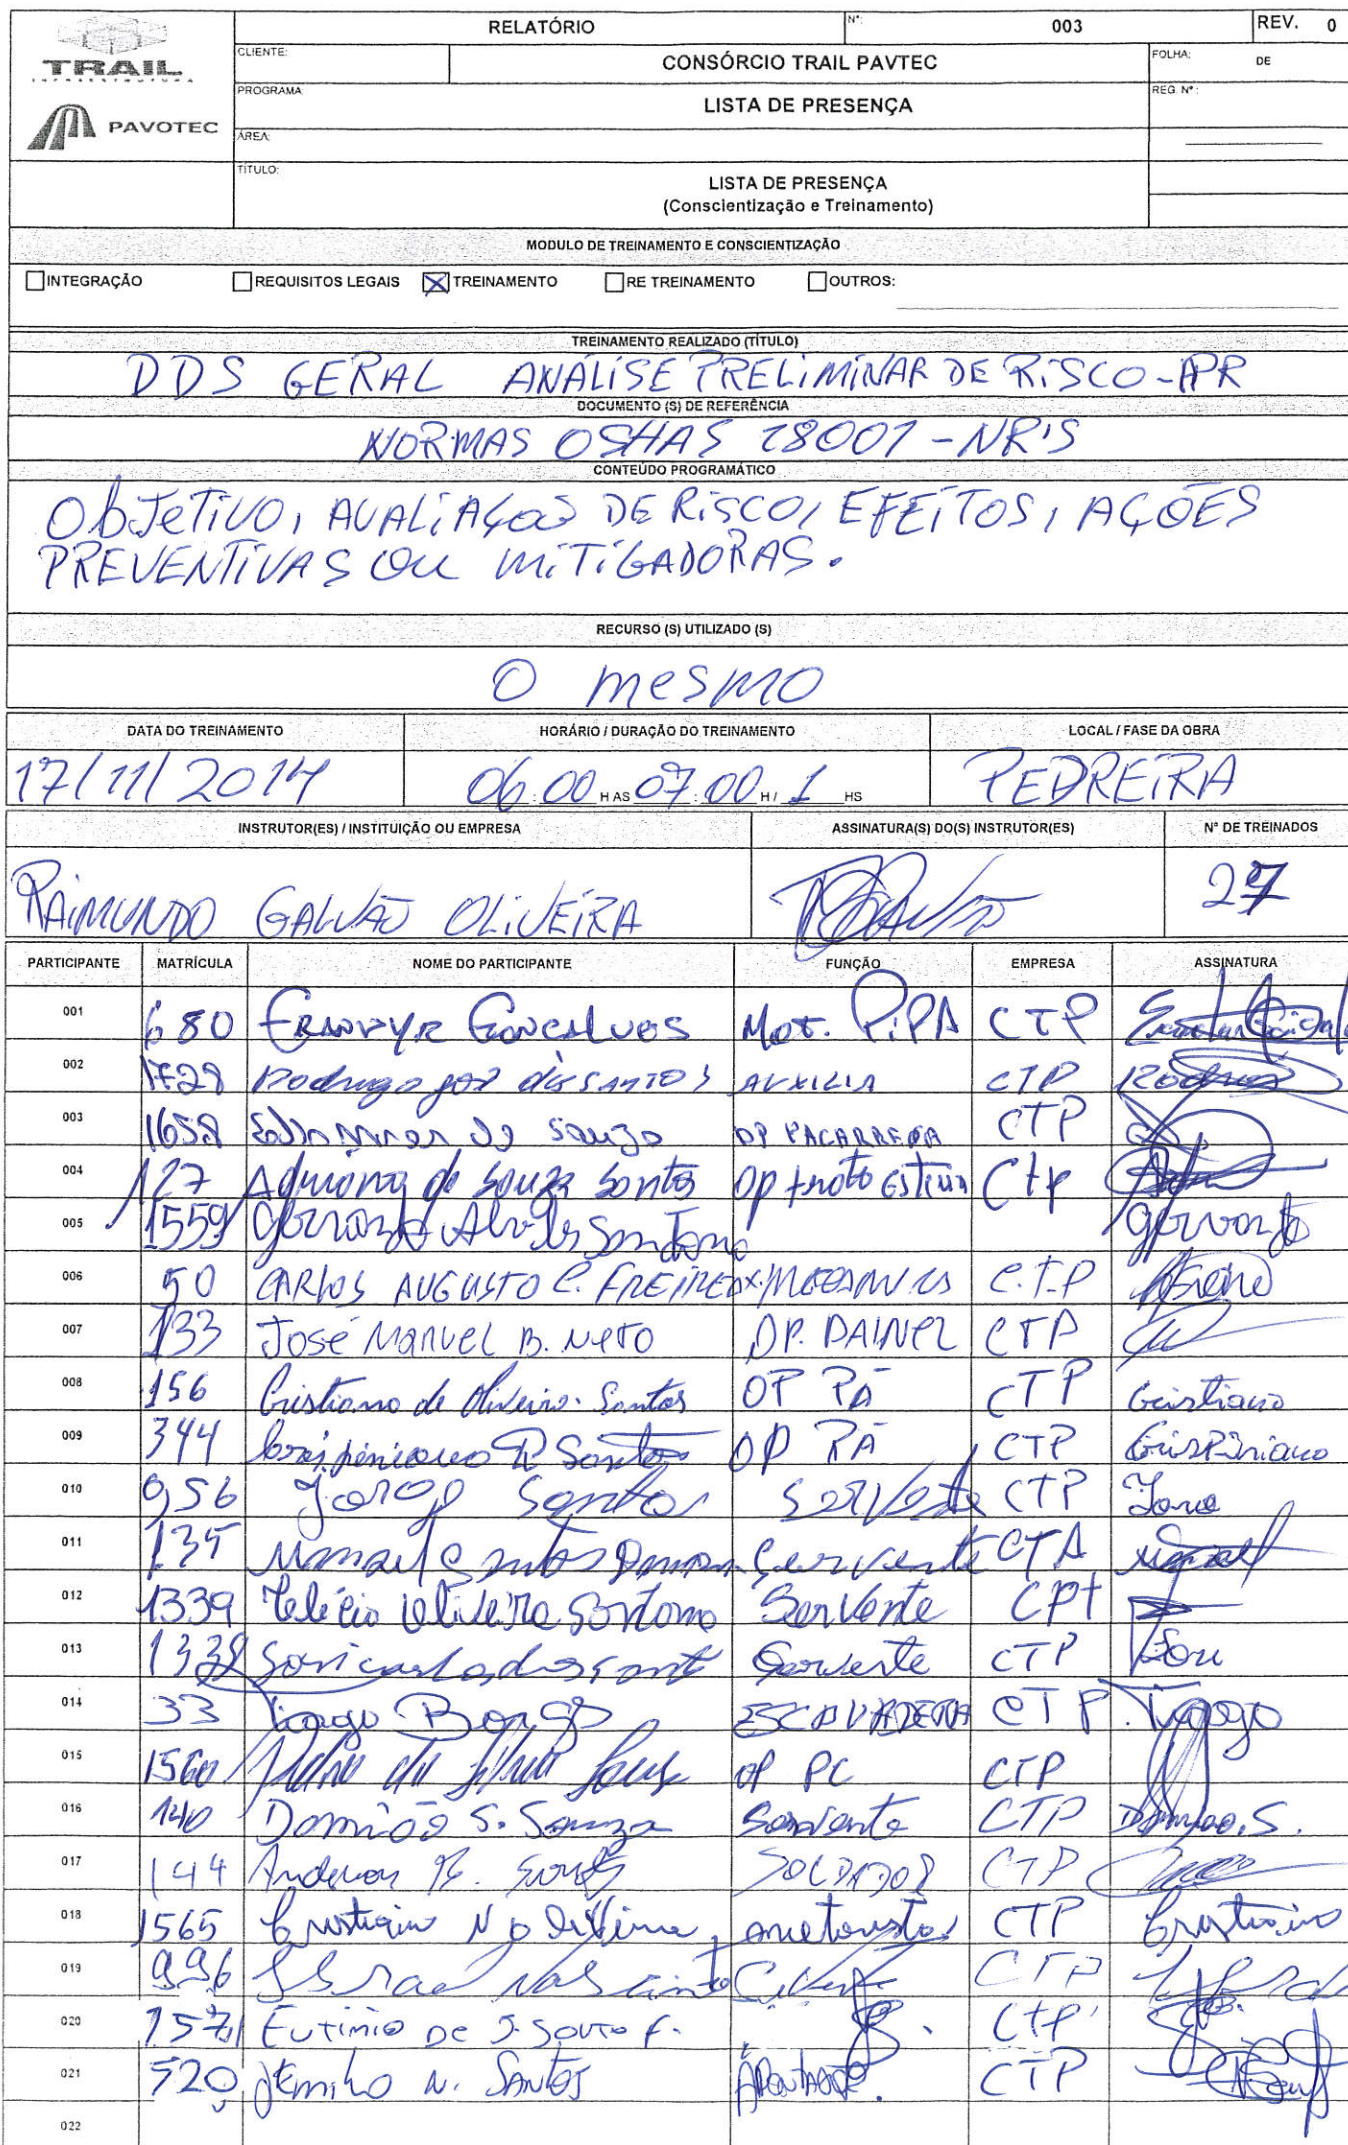 TRAIL
INFRAESTRUTURA
PAVOTEC
RELATÓRIO
Nº: 003
REV. 0
CLIENTE:
CONSÓRCIO TRAIL PAVTEC
FOLHA: DE
PROGRAMA:
LISTA DE PRESENÇA
REG. Nº:
ÁREA:
TÍTULO:
LISTA DE PRESENÇA
(Conscientização e Treinamento)
MODULO DE TREINAMENTO E CONSCIENTIZAÇÃO
INTEGRAÇÃO REQUISITOS LEGAIS TREINAMENTO RE TREINAMENTO OUTROS:
TREINAMENTO REALIZADO (TÍTULO)
DDS GERAL ANÁLISE PRELIMINAR DE RISCO - APR
DOCUMENTO (S) DE REFERÊNCIA
NORMAS OSHAS 18001 - NR'S
CONTEÚDO PROGRAMÁTICO
ObJeTiVO, AVALiAÇÃO DE RISCO, EFEITOS, AÇÕES
PREVENTIVAS OU MITIGADORAS.
RECURSO (S) UTILIZADO (S)
O mesmo
DATA DO TREINAMENTO HORÁRIO / DURAÇÃO DO TREINAMENTO LOCAL / FASE DA OBRA
17/11/2014 06:00 H AS 07:00 H / 1 HS PEDREIRA
INSTRUTOR(ES) / INSTITUIÇÃO OU EMPRESA ASSINATURA(S) DO(S) INSTRUTOR(ES) Nº DE TREINADOS
RAIMUNDO GALVÃO OLIVEIRA 27
PARTICIPANTE MATRÍCULA NOME DO PARTICIPANTE FUNÇÃO EMPRESA ASSINATURA
001 680 Gonçalves Mot. PiPA CTP
002 1728 Rodrigo dos SANTOS AUXILIA CTP Rodrigo
003 1658 de Souza OP CTP
004 127 Adriana de Souza Santos OP Ctp
005 1559 Alves Santana
006 50 CARLOS AUGUSTO C. FREIRE C.T.P
007 133 José Manuel B. Neto OP. PAINEL CTP
008 156 Cristiano de Oliveira Santos OP PÁ CTP Cristiano
009 344 Crispiniano R Santos OP PÁ CTP Crispiniano
010 956 Jorge Santos Servente CTP Jorge
011 135 Servente CTA
012 1339 Oliveira Santana Servente CPt
013 1338 Servente CTP
014 33 Tiago Borges ESCAVADEIRA CTP. Tiago
015 1560 da Silva Souza OP PC CTP
016 140 Domião S. Souza Servente CTP Domiao.S.
017 144 Anderson SOLDADOR CTP
018 1565 CTP
019 996 CTP
020 1571 Eutimio DE J. SOUTO F. CtP
021 520 N. SANTOS APONTADOR. CTP
022